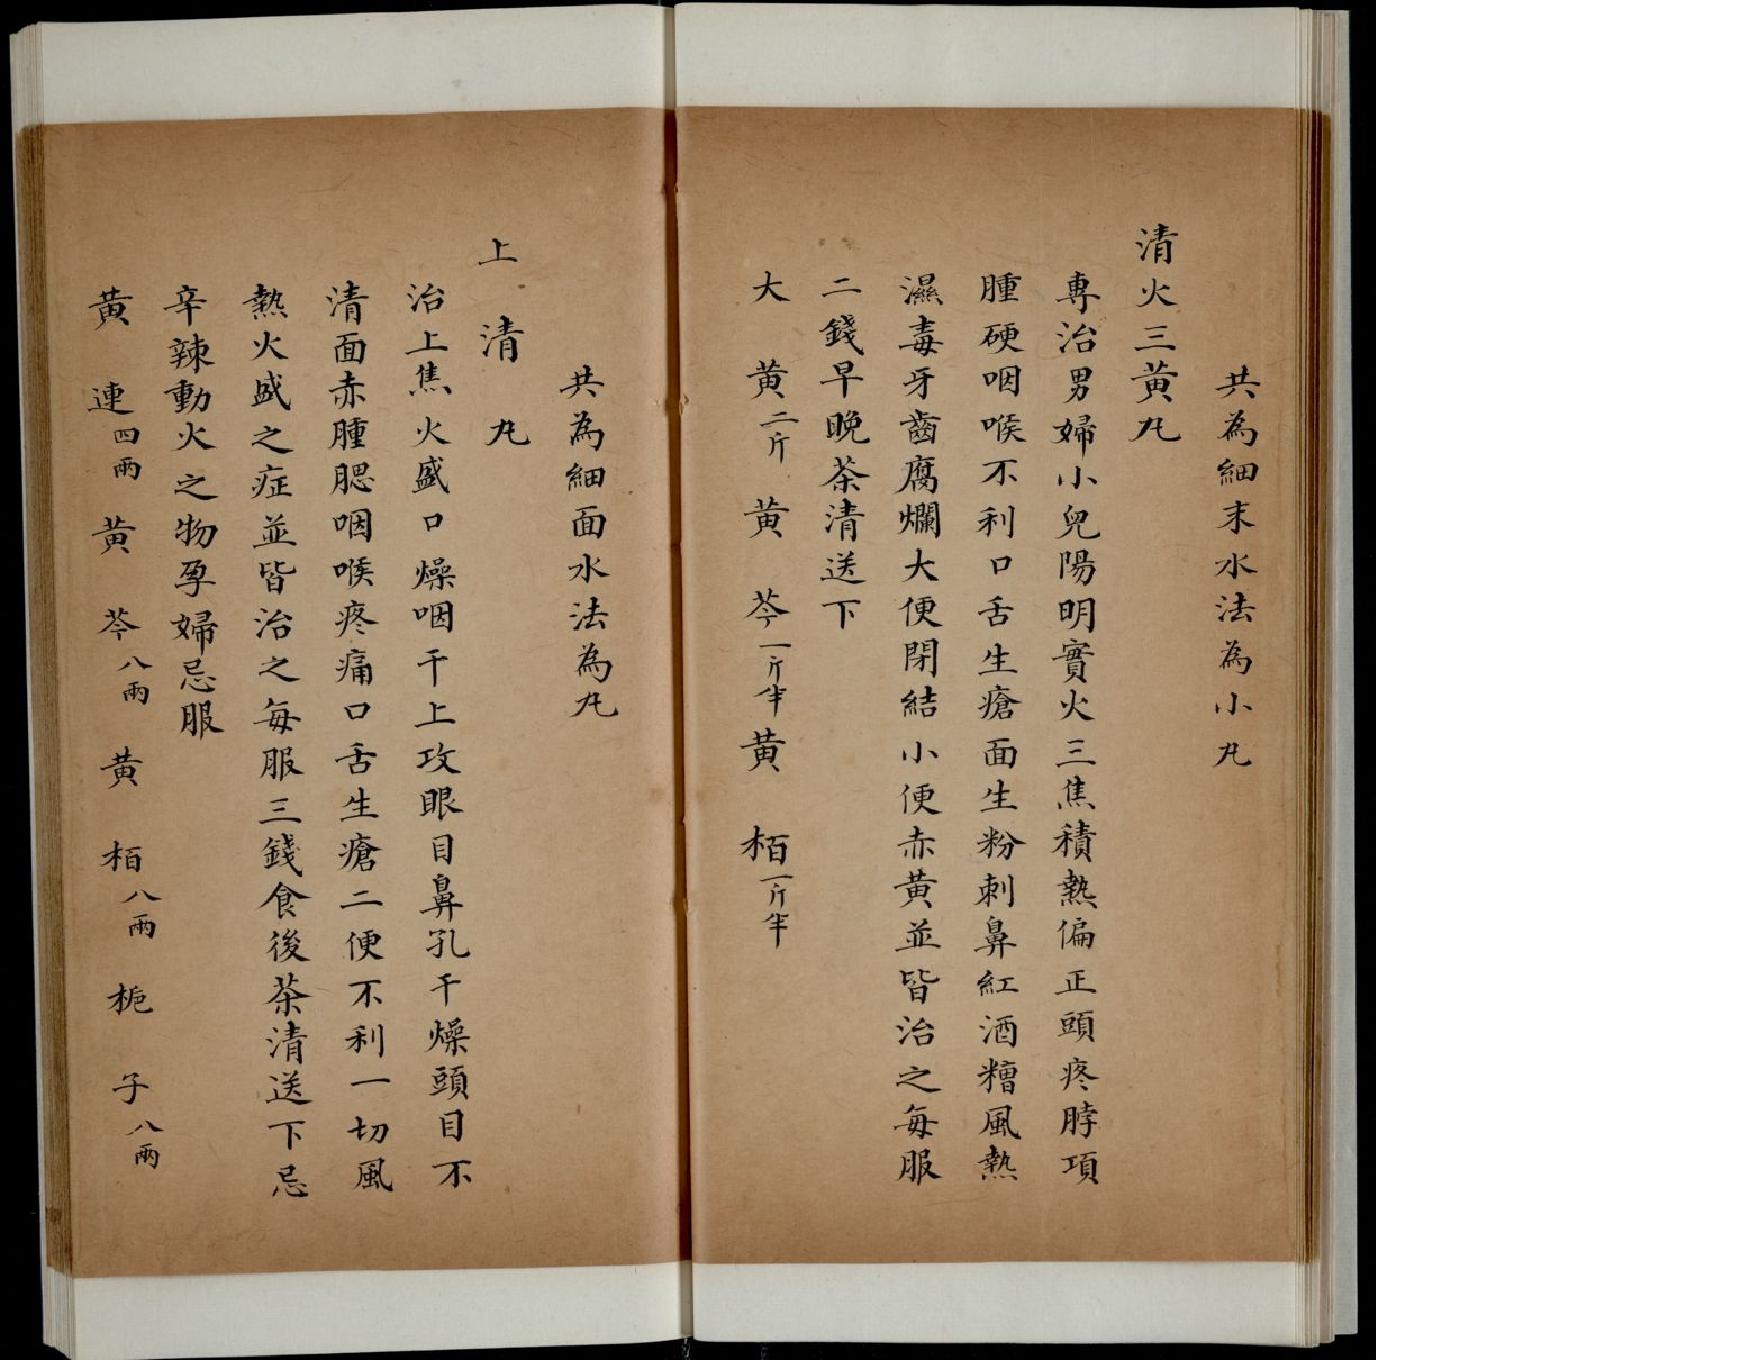 共為細末水法為小丸
清火三黃丸
專治男婦小兒陽明實火三焦積熱偏正頭疼脖項
腫硬咽喉不利口舌生瘡面生粉刺鼻紅酒糟風熱
濕毒牙齒腐爛大便閉結小便赤黃並皆治之每服
二錢早晚茶清送下
大黃二斤 黃芩一斤半 黃栢一斤半
共為細面水法為丸
上清丸
治上焦火盛口燥咽干上攻眼目鼻孔干燥頭目不
清面赤腫腮咽喉疼痛口舌生瘡二便不利一切風
熱火盛之症並皆治之每服三錢食後茶清送下忌
辛辣動火之物孕婦忌服
黃連四兩 黃芩八兩 黃栢八兩 梔子八兩